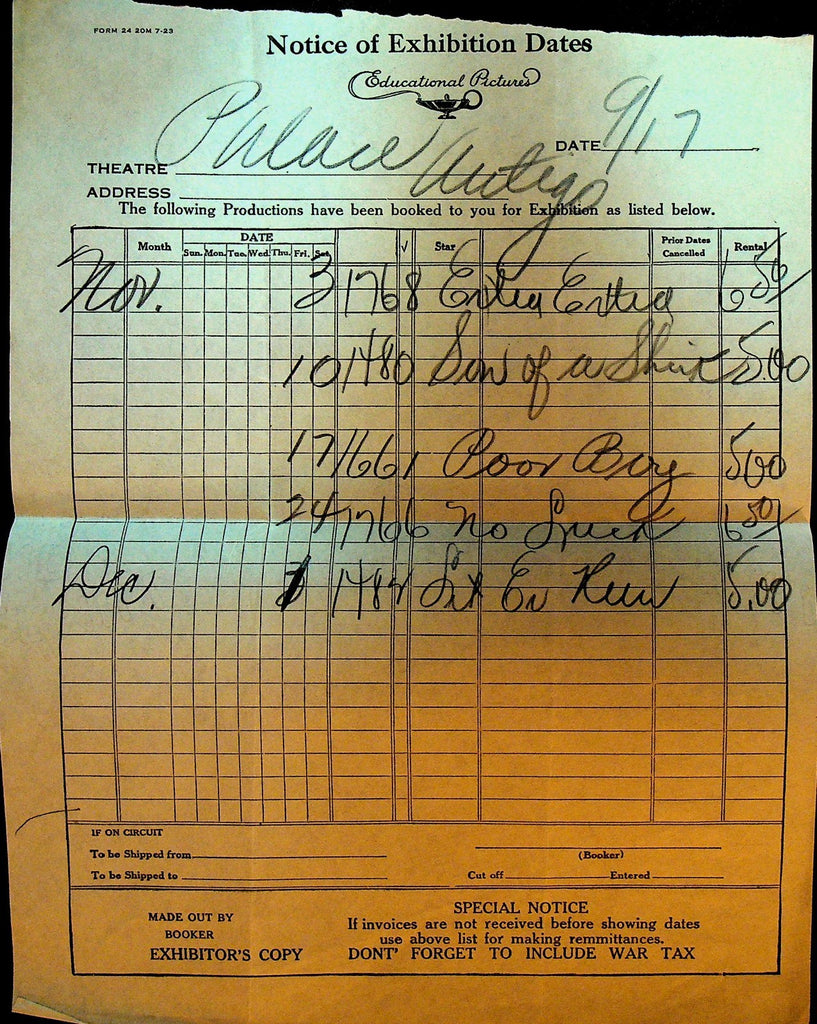 FORM 24 20M 7-23
Notice of Exhibition Dates
Educational Pictures
THEATRE Palace DATE 9/17
ADDRESS Antigo
The following Productions have been booked to you for Exhibition as listed below.
Month DATE √ Star Prior Dates Cancelled Rental
Sun. Mon. Tue. Wed. Thu. Fri. Sat.
Nov. 3 1768 Extra Extra 6.50/
10 1480 Son of a Sheik 5.00
17 1661 Poor Boy 5.00
24 1766 No Luck 6.50/
Dec. 1 1482 Let Er Run 5.00
IF ON CIRCUIT
To be Shipped from (Booker)
To be Shipped to Cut off Entered
MADE OUT BY
BOOKER
EXHIBITOR'S COPY
SPECIAL NOTICE
If invoices are not received before showing dates
use above list for making remmittances.
DONT' FORGET TO INCLUDE WAR TAX